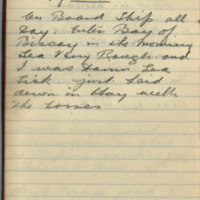 On Board Ship all
Day. Enter Bay of
Biscay in the Morning
Sea Very Rough and
I was Damn Sea
Sick just laid
down in Hay with
the horses